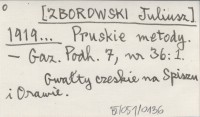 [ZBOROWSKI Juliusz]
1919... Pruskie metody.
— Gaz. Podh. 7, nr 36: 1.
Gwałty czeskie na Spiszu
i Orawie.
B/051/0136